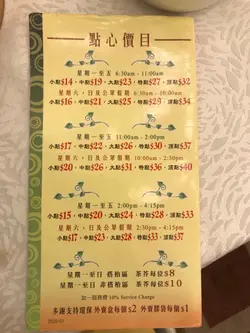 點心價目
星期一至五 6:30am - 11:00am
小點$14 中點$19 大點$23 特點$27 頂點$32
星期六、日及公眾假期
小點$16 中點$21 大點$25 特點$29 頂點$34
星期一至五 11:00am - 2:00pm
小點$17 中點$22 大點$26 特點$30 頂點$35
星期六、日及公眾假期 10:00am - 2:30pm
小點$20 中點$26 大點$31 特點$36 頂點$40
星期一至五 2:00pm - 4:15pm
小點$15 中點$20 大點$24 特點$28 頂點$33
星期六、日及公眾假期 2:30pm - 4:15pm
小點$17 中點$23 大點$28 特點$33 頂點$37
星期一至日 搭枱區 茶芥每位$8
星期一至日 非搭枱區 茶芥每位$10
加一服務費 10% Service Charge
多謝支持環保 外賣盒每個$2 外賣膠袋每個$1